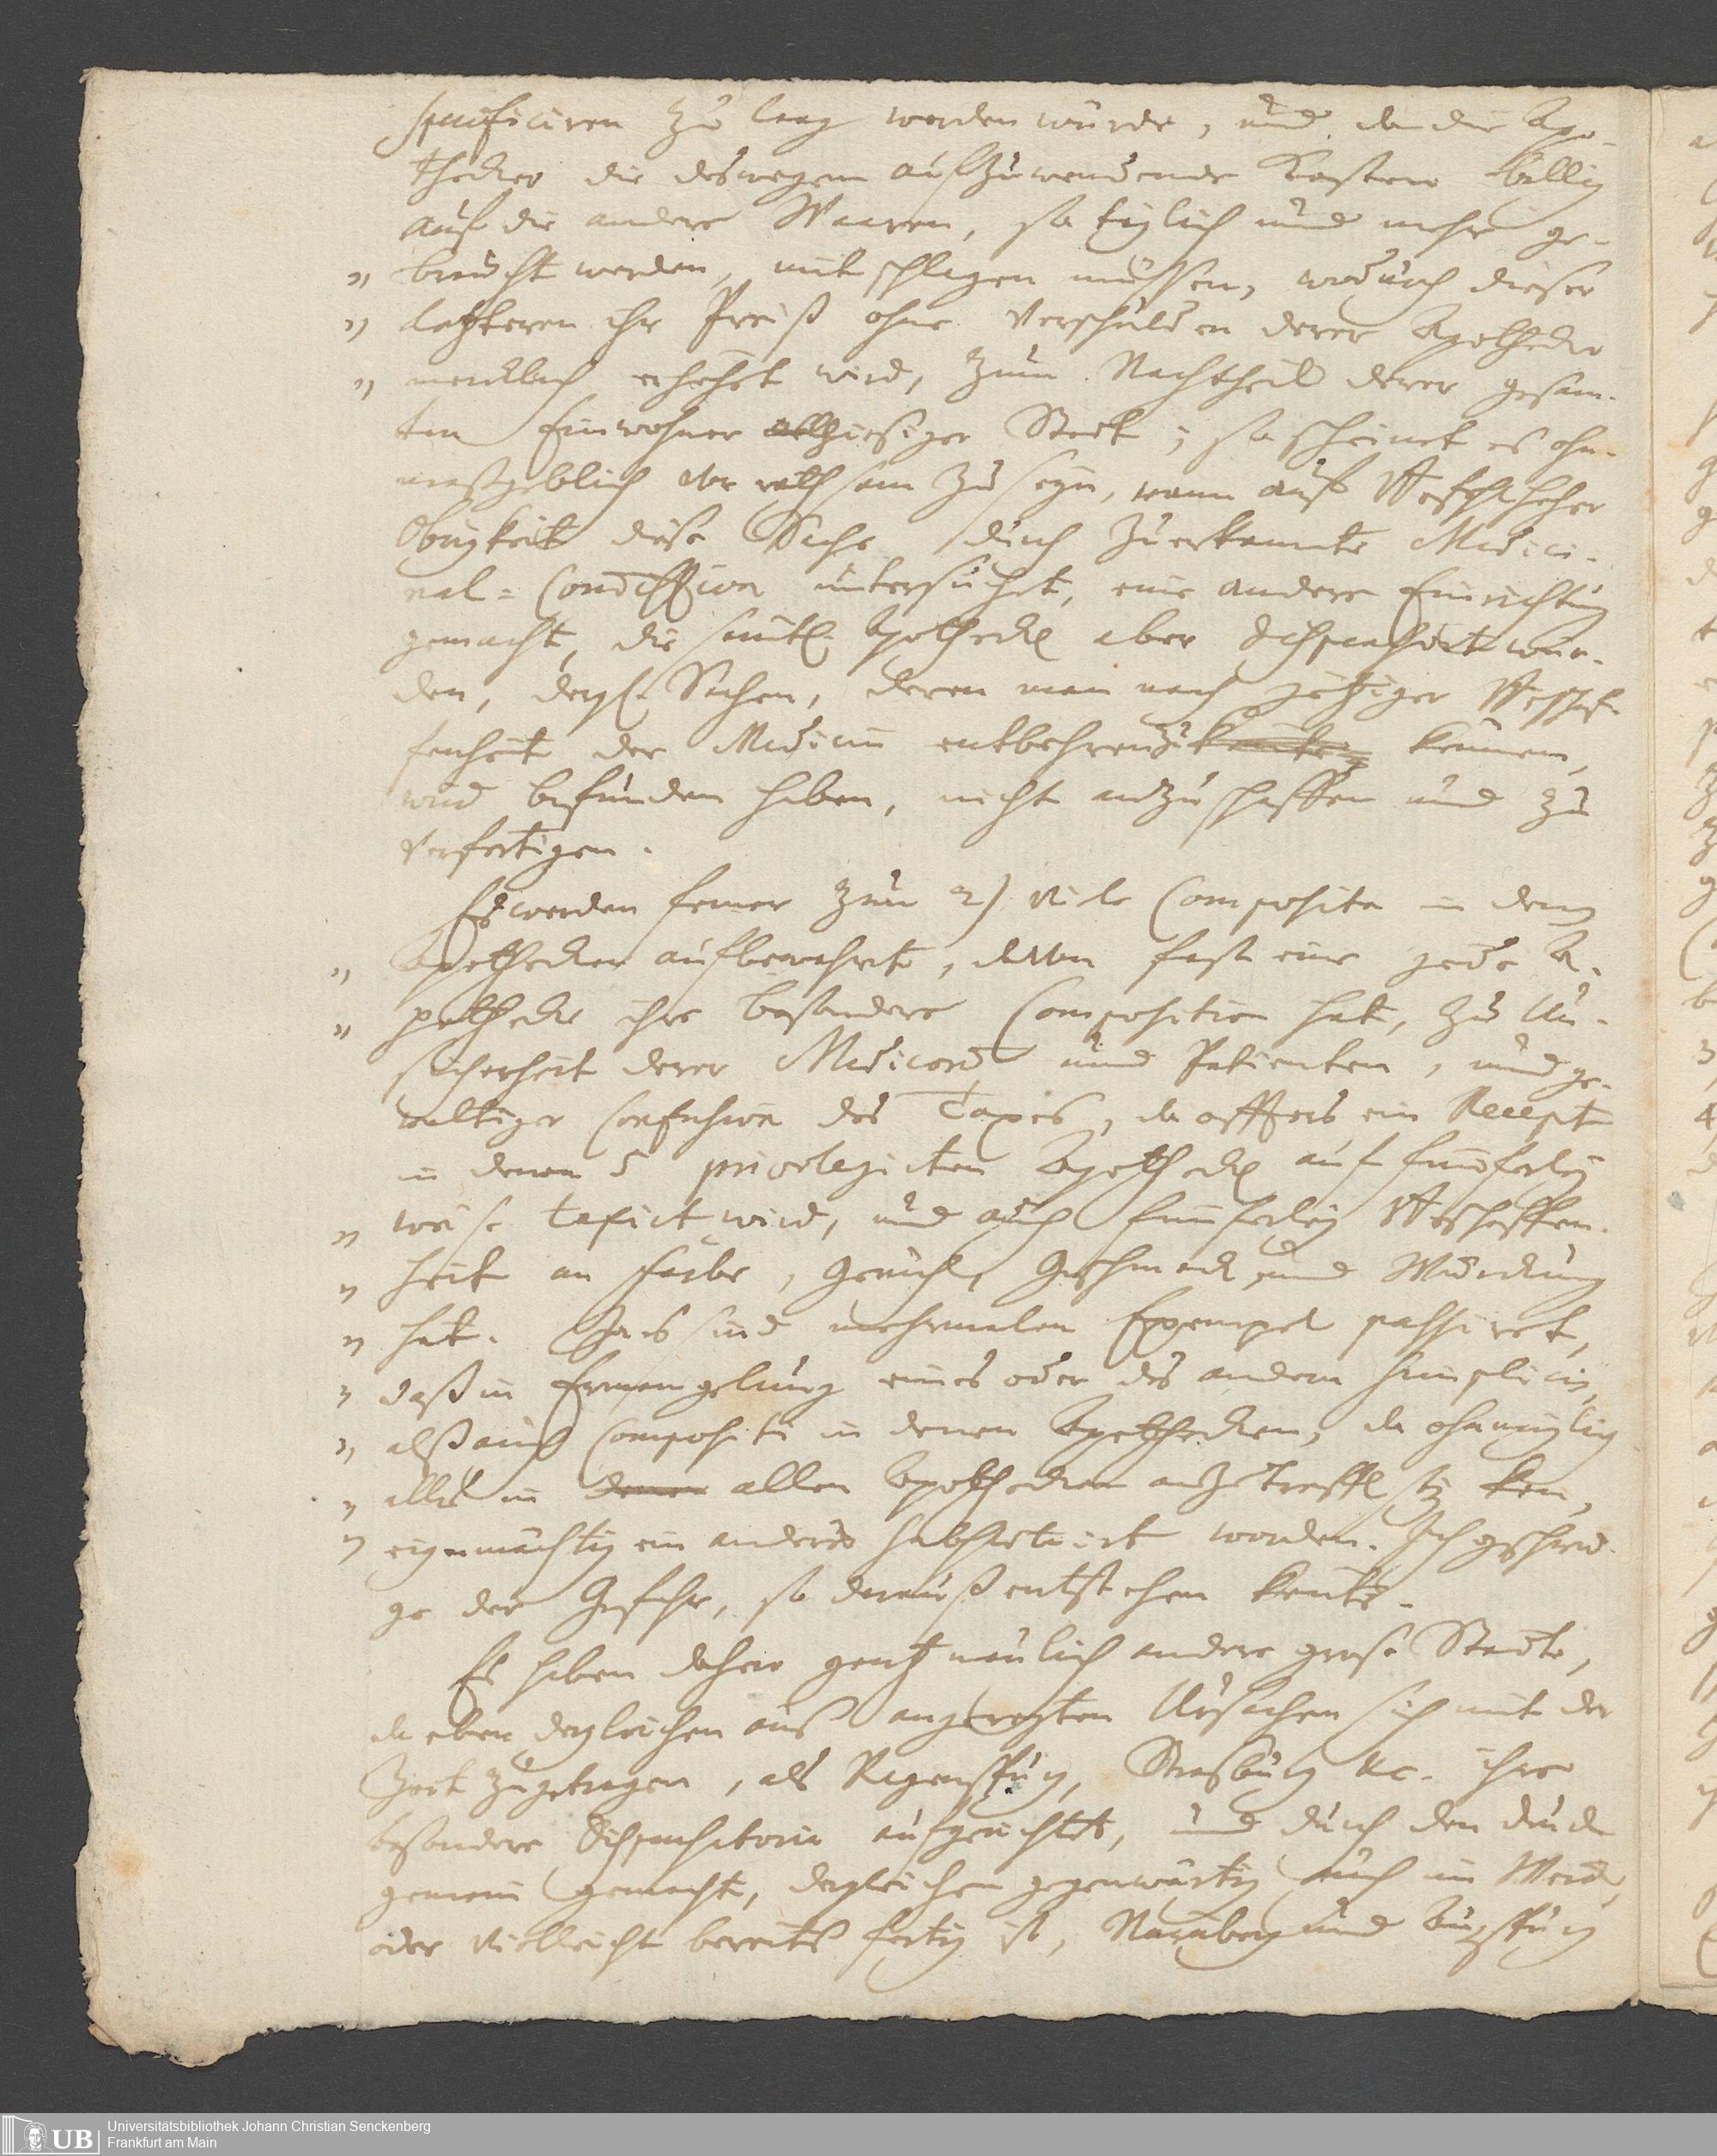 specificiren zu lang werden würde, und da die Apo-
thecker die deswegen aufzuwendende Kosten billig
auf die andere Waaren, so täglich und mehr ge-
„ braucht werden, mit schlagen müssen, wodurch dieser
„ letzteren ihr Preiß ohne Verschulden derer Apothecker
„ mercklich erhöhet wird, zum Nachtheil derer gesam-
ten Einwohner allhiesiger Statt; so scheinet es ohn-
maßgeblich rathsam zu seyn, wann auf
Obrigkeit diese Sache durch zuerkannte Medici-
nal-Com͞ission untersuchet, eine andere Einrichtung
gemacht, die sämtl. Apotheck aber dispensirt wür-
den, dergl. Sachen, deren man nach jetziger Beschaf-
fenheit der Medicin entbehren zu können,
wird befunden haben, nicht anzuschaffen und zu
verfertigen.
Es werden ferner zum 2) viele Composita in denen
„ Apothecken aufbewahrt, davon fast eine jede A-
„ pothecke ihre besondere Composition hat, zu Un-
sicherheit derer Medicorum und Patienten, und ge-
waltiger Confusion des Taxes, da öffters ein Recept
in denen 5 privelegirten Apotheck auf fünferley
„ weise taxirt wird, und auch fünferley Beschaffen-
„ heit an Farbe, Geruch, Geschmack und Würckung
„ hat. Ja es sind mehrmalen Exempel passiret,
„ daß in Ermangelung eines oder des andern Simplicis,
„ alß auch Compositi in denen Apothecken, da ohnmöglich
„ alles in denen allen Apothecken anzutreffen seyn kan,
„ eigenmächtig ein anderes substituirt worden. Ich geschwei-
ge der Gefahr, so darauß entstehen könte.
Es haben dahero gantz neulich andere große Städte,
da eben dergleichen auß angeregten Ursachen sich mit der
Zeit zugetragen, als Regenspurg, Straßburg &c. ihre
besondere Dispensatoria aufgerichtet, und durch den Druck
gemein gemacht, dergleichen gegenwärtig auch im Werck,
oder vielleicht bereits fertig ist, Nürnberg und Augspurg
Universitätsbibliothek Johann Christian Senckenberg
Frankfurt am Main
UB